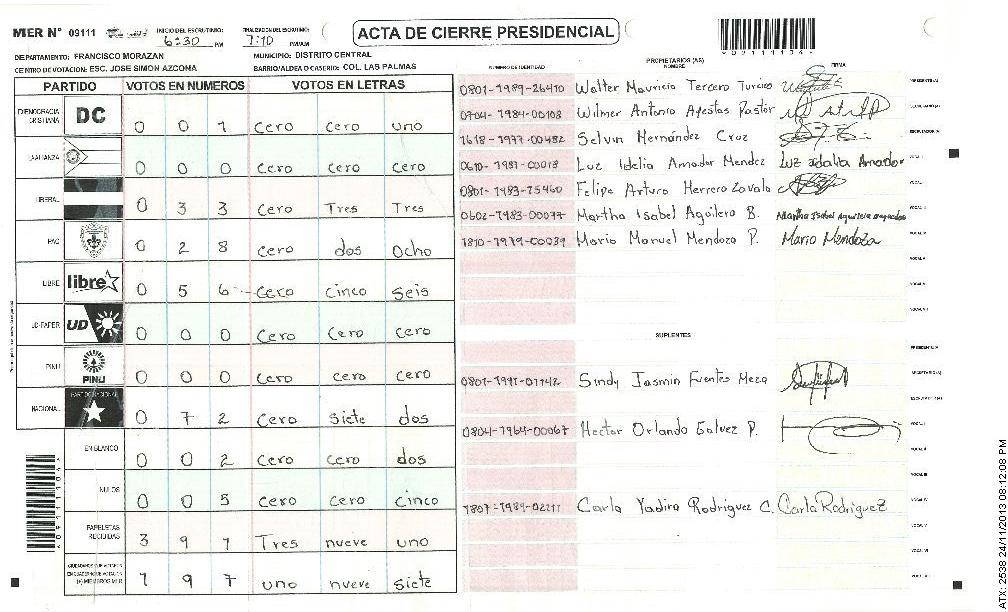 MER N° 09111
INICIO DEL ESCRUTINIO: 6:30 PM
FINALIZACION DEL ESCRUTINIO: 7:10 PM/AM
ACTA DE CIERRE PRESIDENCIAL
DEPARTAMENTO: FRANCISCO MORAZAN
MUNICIPIO: DISTRITO CENTRAL
CENTRO DE VOTACION: ESC. JOSE SIMON AZCONA
BARRIO/ALDEA O CASERIO: COL. LAS PALMAS
PARTIDO VOTOS EN NUMEROS VOTOS EN LETRAS
DEMOCRACIA CRISTIANA DC 0 0 1 cero cero uno
LA ALIANZA 0 0 0 cero cero cero
LIBERAL 0 3 3 cero Tres Tres
PAC 0 2 8 cero dos ocho
LIBRE libre 0 5 6 cero cinco seis
UD-FAPER UD 0 0 0 cero cero cero
PINU PINU 0 0 0 cero cero cero
NACIONAL PARTIDO NACIONAL 0 7 2 cero siete dos
EN BLANCO 0 0 2 cero cero dos
NULOS 0 0 5 cero cero cinco
PAPELETAS RECIBIDAS 3 9 1 Tres nueve uno
1 9 7 uno nueve siete
NUMERO DE IDENTIDAD PROPIETARIOS (AS) NOMBRE FIRMA
0801-1989-26410 Walter Mauricio Tercero Turcios PRESIDENTE(A)
0704-1984-00108 Wilmer Antonio Agestas Pastor SECRETARIO(A)
1618-1977-00482 Selvin Hernández Cruz ESCRUTADOR(A)
0610-1981-00018 Luz Idelia Amador Mendez Luz Idalita Amador VOCAL I
0801-1983-15460 Felipe Arturo Herrero Zavala VOCAL II
0602-1983-00077 Martha Isabel Aguilera B. VOCAL III
1810-1979-00039 Mario Manuel Mendoza P. Mario Mendoza VOCAL IV
VOCAL V
VOCAL VI
VOCAL VII
SUPLENTES
PRESIDENTE(A)
0801-1991-01142 Sindy Jasmin Fuentes Meza SECRETARIO(A)
ESCRUTADOR(A)
0804-1964-00067 Hector Orlando Galvez P. VOCAL I
VOCAL II
VOCAL III
1807-1989-02211 Carla Yadira Rodriguez C. Carla Rodriguez VOCAL IV
VOCAL V
VOCAL VI
VOCAL VII
ATX: 2538 24/11/2013 08:12:08 PM